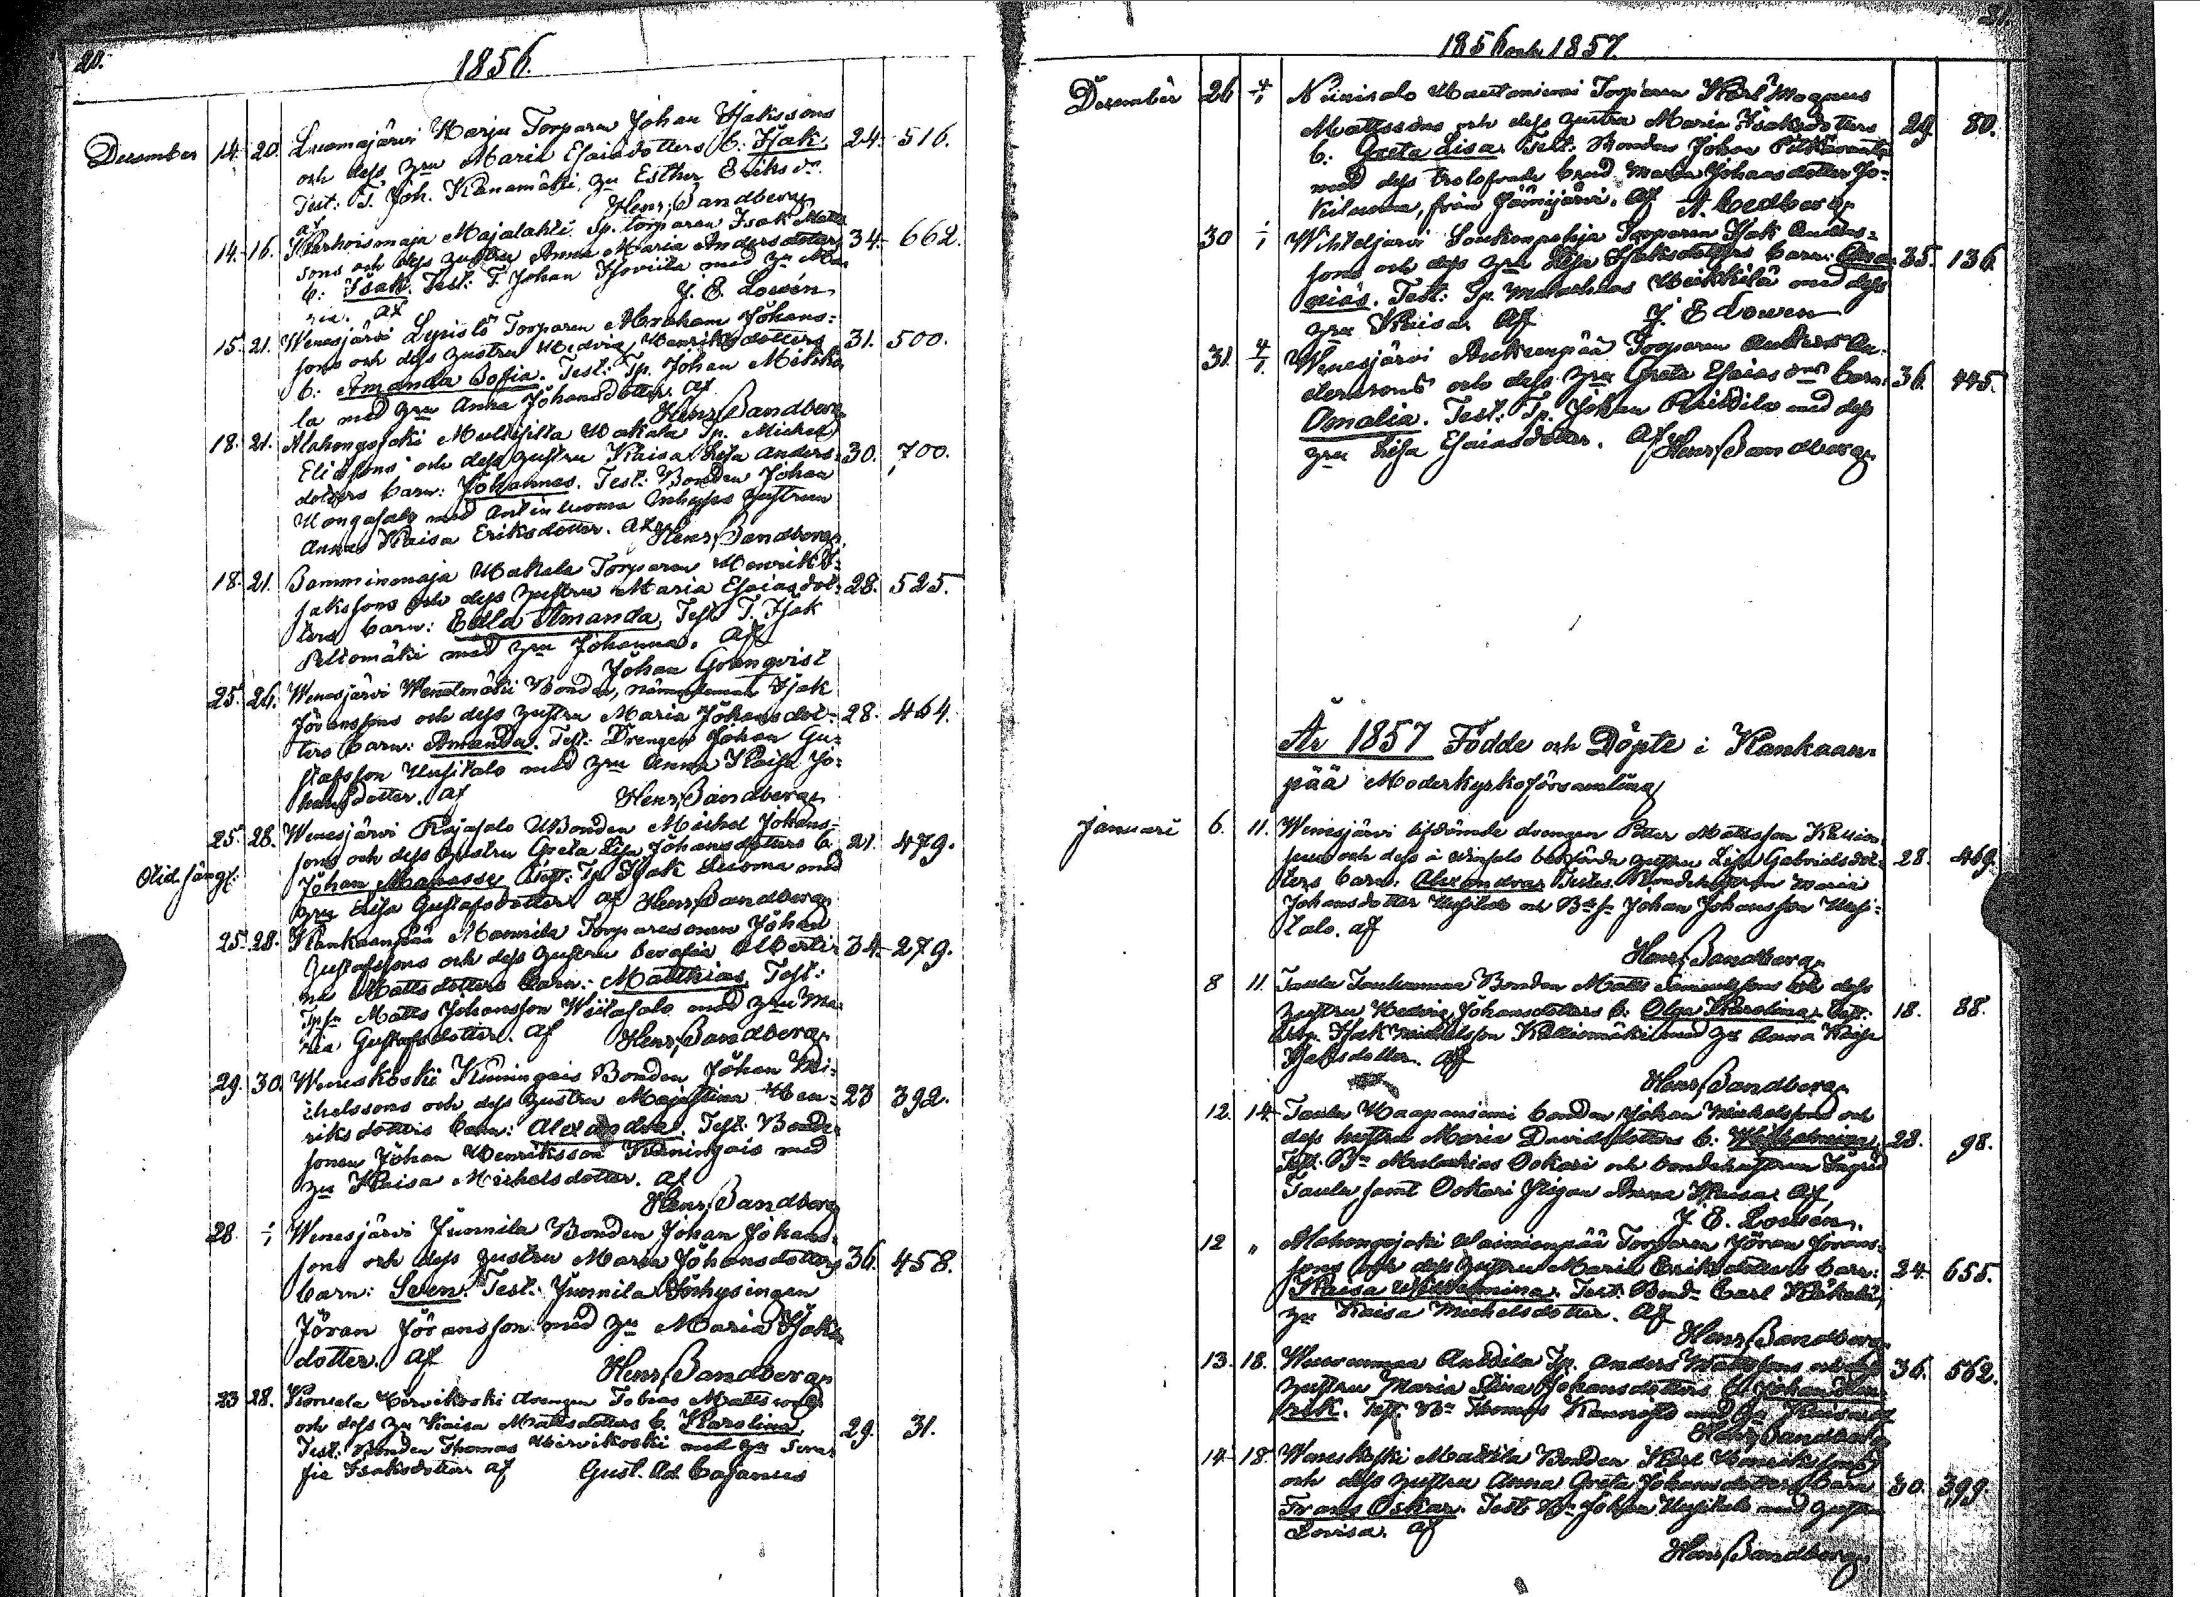 20.
1856.
December 14. 20. Luomajärvi Marju Torparen Johan Isakssons
och dess Hru Maria Esaiædotters b: Isak 24. 516.
Test: T. Joh. Kanamäki, Hu Esther Eriksdr.
af Henr. Sandberg
14. 16. Majalahti Sp. torparen Isak Matts
sons och dess hustru Anna Maria Andersdotters 34. 662.
b: Isak. Test: T. Johan med Hu Ma
ria. af J. E. Lowén
15. 21. Wenesjärvi Lepistö Torparen Abraham Johans-
sons och dess hustru Hedvig Henriksdotters 31. 500.
b: Amanda Sofia. Test: Tp. Johan Mikko
la med Hru Anna Johansdotter. af
Henr. Sandberg
18. 21. Alahongojoki Tp. Michel
Eliæssons och dess hustru Kaisa Lisa Anders- 30. 700.
dotters barn: Johannes. Test: Bonden Johan
Hongasalo med Antinluoma Inhyses hustrun
Anna Kaisa Eriksdotter. af Henr. Sandberg
18. 21. Samminmaja Torparen Henrik I-
sakssons och dess hustru Maria Esaiasdot- 28. 525.
ters barn: Edla Amanda. Test T. Isak
Peltomäki med Hru Johanna. af
Johan Granqvist
25. 26. Wenesjärvi Bonden, nämndeman Isak
Jöranssons och dess hustru Maria Johansdot- 28. 464.
ters barn: Amanda. Test: Drengen Johan Gu-
stafsson Uusitalo med Hru Anna Kaisa Jo-
hansdotter. af Henr. Sandberg
25. 28. Wenesjärvi Rajasalo Bonden Michel Johans-
sons och dess hustru Greta Lisa Johansdotters b. 21. 479.
Johan Manasse. Test: Tp Isak Luoma med
Hru Lisa Gustafsdotter af Henr. Sandberg
25. 28. Kankaanpää Mannila Torparesonen Johan
Gustafssons och dess hustru Alberti- 34. 279.
na Mattsdotters barn: Matthias Test:
Matts Johansson Wiitasalo med Hru Ma-
ria Gustafsdotter. af Henr. Sandberg
29. 30. Weneskoski Kuningais Bonden Johan Mi-
chelssons och dess hustru Majastina Hen- 23 392.
riksdotters barn: Alexandra. Test: Bonde
sonen Johan Henriksson Kuningais med
Hu Kaisa Michelsdotter. af
Henr. Sandberg
28. 1/1 Wenesjärvi Junnila Bonden Johan Johans-
sons och dess hustru Maria Johansdotters 36. 458.
barn: Sven. Test: Junnila Inhysingen
Jöran Jöransson med Hu Maria Isaks
dotter. af Henr. Sandberg
23 28. drengen Tobias Mattssons
och dess Hu Kaisa Mattsdotters b. Karolina 29. 31.
Test: Bonden Thomas med Hu
Isaksdotter af Gust. Ad. Cajanus
1856 och 1857.
December 26 4/1 Niinisalo Torparen Karl Magnus
Mattssons och dess hustru Maria Isaksdotters 29. 80.
b: Greta Lisa. Test: Bonden Johan
med dess trolofvade brud Maria Johansdotter Jo-
kiluoma, från Jämijärvi. af A. Cedberg
30 1/1 Torparen Isak Anders-
sons och dess Hru Lisa Isaksdotters barn: 35. 136
Test: Tp. med dess
Hru Kaisa. af J. E Lowen
31. 4/1 Wenesjärvi Torparen An-
derssons och dess Hru Greta Esaiasdrs barn 36. 445.
Amalia. Test: Tp. Johan med dess
Hru Lisa Esaiasdotter. af Henr. Sandberg
År 1857 Födde och Döpte i Kankaan-
pää Moderkyrkoförsamling
Januari 6. 11. Wenesjärvi drengen Petter Mattsson
och dess hustru Lisa Gabrielsdot- 28. 469.
ters barn: Alexandra. Testes Bondehustrun Maria
Johansdotter Uusitalo och Johan Johansson Uusi-
talo. af
Henr. Sandberg
8 11. Taula Bonden Matts Samuelssons och dess
hustru Hedvig Johansdotters b. Olga Karolina. Test: 18. 88.
Isak Michelsson Kalliomäki med Hu Anna Kaisa
Isaksdotter. af
Henr. Sandberg
12. 14. Taula Haapaniemi bonden Johan Michelssons och
dess hustru Maria Davidsdotters b: Wilhelmina. 28. 98.
Test. Bn Malachias Ookari och bondehustrun Ingrid
Taula samt Ookari Pigan Anna Kaisa af
J. E. Lowén.
12 " Alahongojoki Torparen Jöran Jörans-
sons och dess hustru Maria Eriksdotters barn: 24. 655.
Kaisa Wilhelmina. Test: Bond. Carl
Hu Kaisa Michelsdotter. af
Henr. Sandberg
13. 18. Anttila Tp. Anders Mattssons och dess 36. 562.
hustru Maria Stina Johansdotters b. Johan Hen-
rik. Test. Bn Thomas med Hu Kaisa af
Henr. Sandberg
14 18. Weneskoski Mattila Bonden Karl Henrikssons
och dess hustru Anna Greta Johansdotters barn 30. 399.
Frans Oskar. Test: Bn Johan Uusitalo med hustru
Lovisa. af
Henr. Sandberg